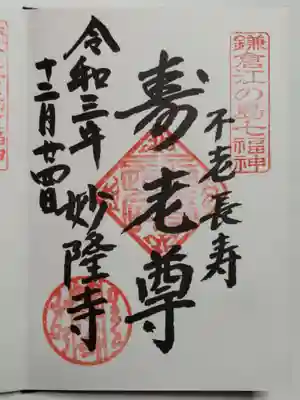 鎌倉江の島七福神
不老長寿
寿老尊
令和三年
十二月廿四日
妙隆寺